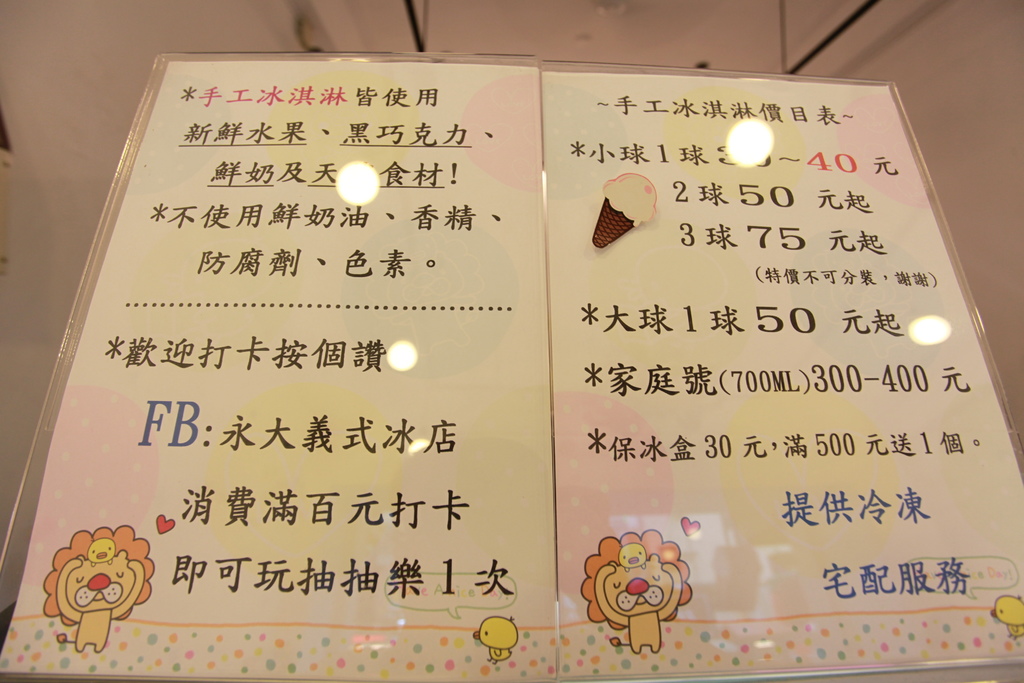 *手工冰淇淋皆使用
新鮮水果、黑巧克力、
鮮奶及天食材!
*不使用鮮奶油、香精、
防腐劑、色素。
*歡迎打卡按個讚
FB:永大義式冰店
消費滿百元打卡
即可玩抽抽樂1次
~手工冰淇淋價目表~
*小球1球 ~40元
2球50 元起
3球75 元起
(特價不可分裝,謝謝)
*大球1球50 元起
*家庭號(700ML)300-400元
*保冰盒30元,滿500元送1個。
提供冷凍
宅配服務